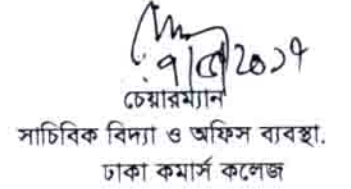 ৭/৫/২০১৭
চেয়ারম্যান
সাচিবিক বিদ্যা ও অফিস ব্যবস্থা.
ঢাকা কমার্স কলেজ